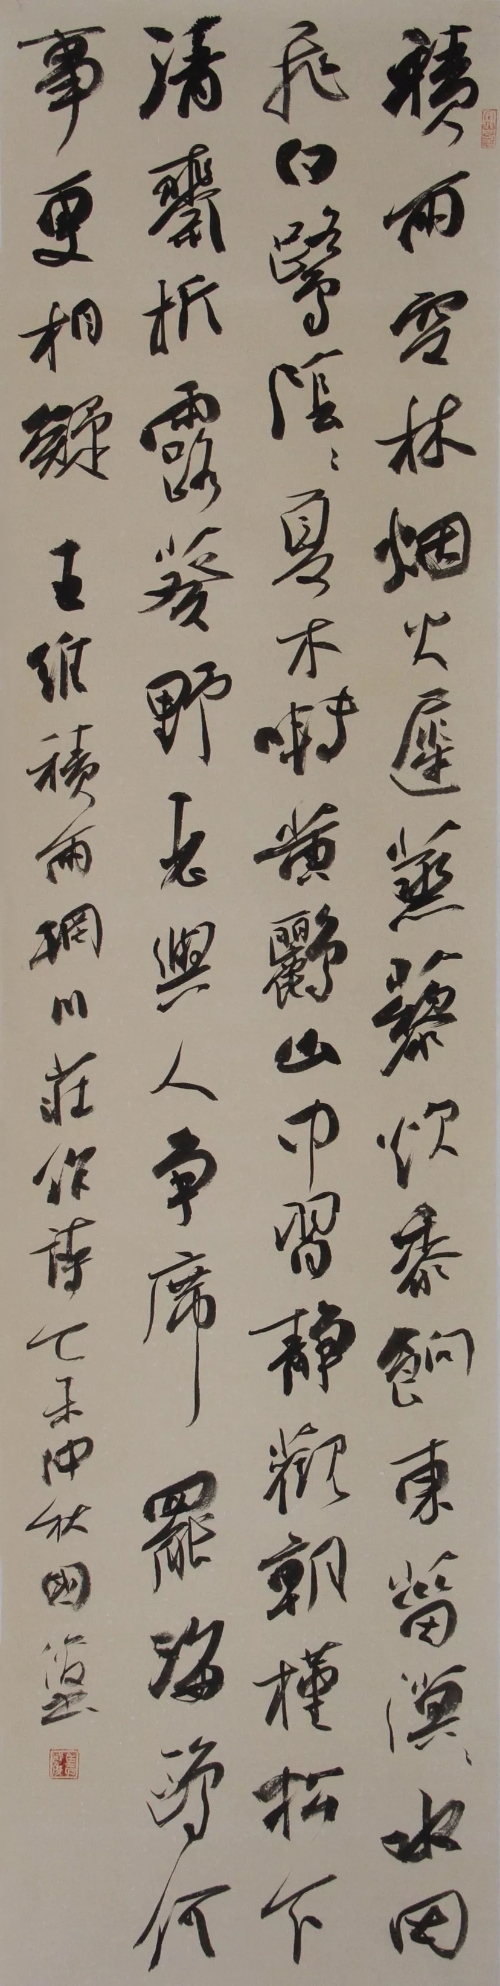 積雨空林烟火遲蒸藜炊黍餉東菑漠〻水田
飛白鷺陰〻夏木囀黄鸝山中習靜觀朝槿松下
清齋折露葵野老與人争席罷海鷗何
事更相疑 王維積雨輞川莊作詩乙未仲秋國